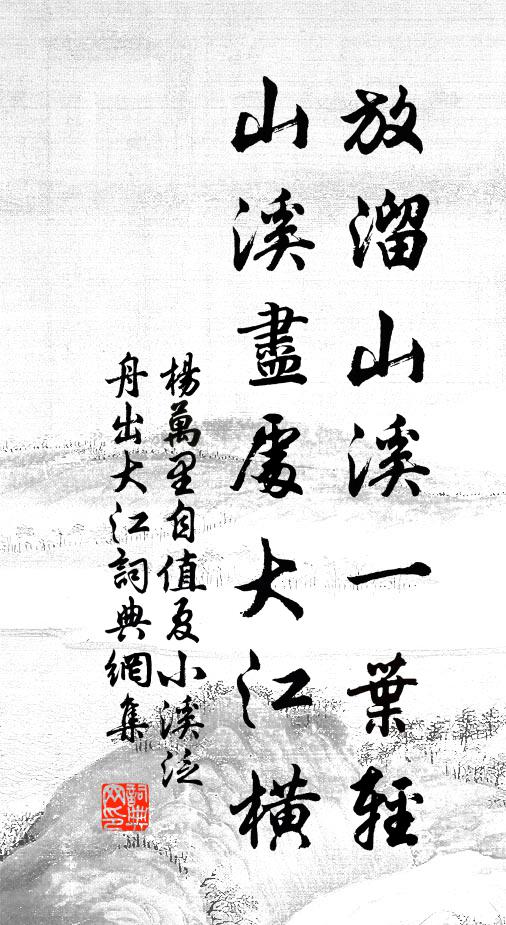 放溜山溪一葉輕
山溪盡處大江橫
楊萬里自值夏小溪泛
舟出大江詞典網集
詞典
网印